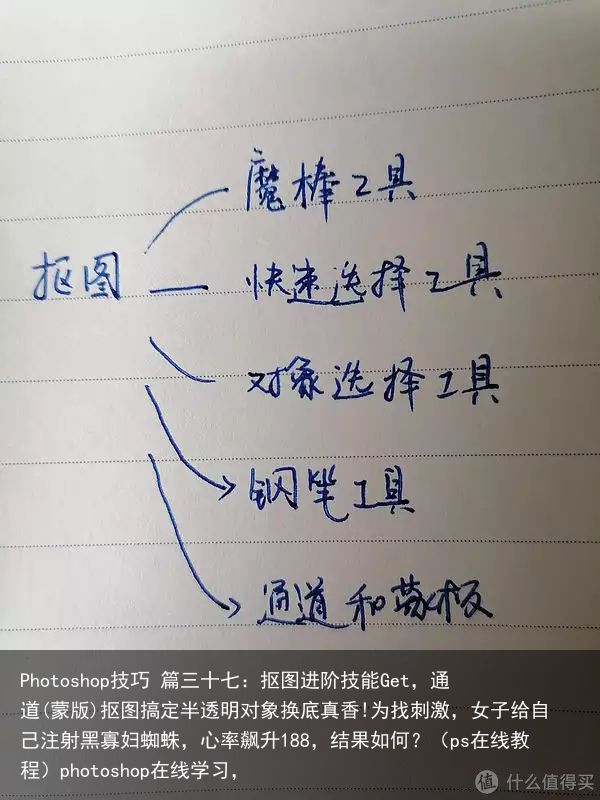 魔棒工具
抠图
快速选择工具
对象选择工具
钢笔工具
通道和蒙板
Photoshop技巧 篇三十七：抠图进阶技能Get，通
道(蒙版)抠图搞定半透明对象换底真香!为找刺激，女子给自
己注射黑寡妇蜘蛛，心率飙升188，结果如何？（ps在线教
程）photoshop在线学习，
值 什么值得买